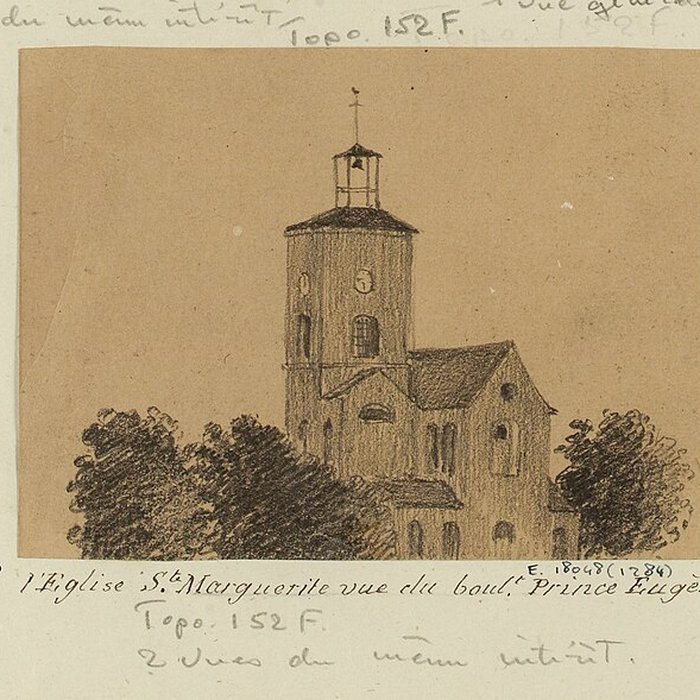 du même intérêt. Vue générale
Topo. 152 F.
E. 18048 (1284)
l'Eglise Ste Marguerite vue du boult. Prince Eugè
Topo. 152 F.
2 vues du même intérêt.